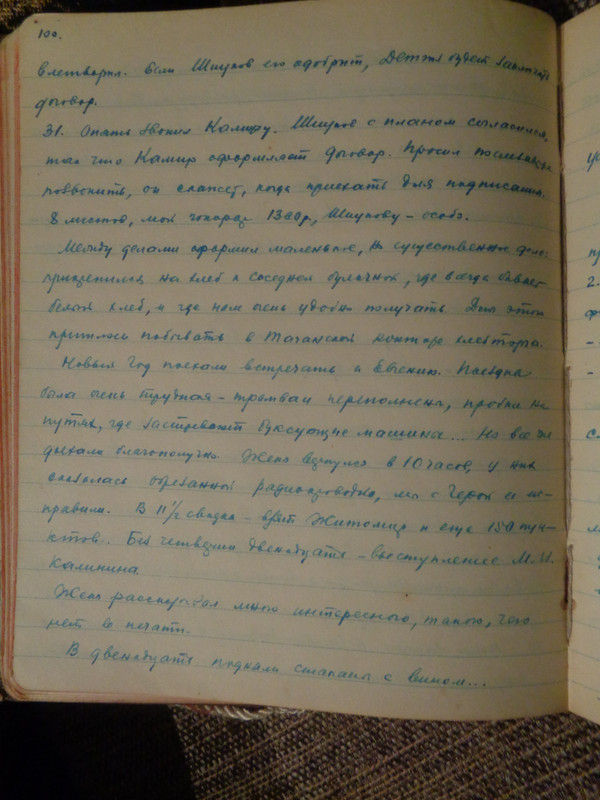 100.
влетворил. Если Шишков его одобрит, Детгиз будет заключать
договор.
31. Опять звонил Камиру. Шишков с планом согласился,
так что Камир оформляет договор. Просил
позвонить, он скажет, когда приехать для подписания.
8 листов, мой гонорар 1300 р, Шишкову – особо.
Между делами оформил маленькое, но существенное дело:
прицепился на хлеб к соседней булочной, где всегда бывает
белый хлеб, и где нам очень удобно получать. Для этого
пришлось побывать в Таганской конторе хлебторга.
Новый Год поехали встречать к Евгению. Поездка
была очень трудная – трамваи переполнены, пробки на
путях, где застревают буксующие машины... Но все же
доехали благополучно. Женя вернулся в 10 часов, у них
оказалась оборванной радиопроводка, мы с Герой ее ис-
правили. В 11½ сводка – взят Житомир и еще 150 пун-
ктов. Без четверти двенадцать – выступление М. И.
Калинина
Женя рассказывал много интересного, такого, чего
нет в печати.
В двенадцать подняли стаканы с вином...